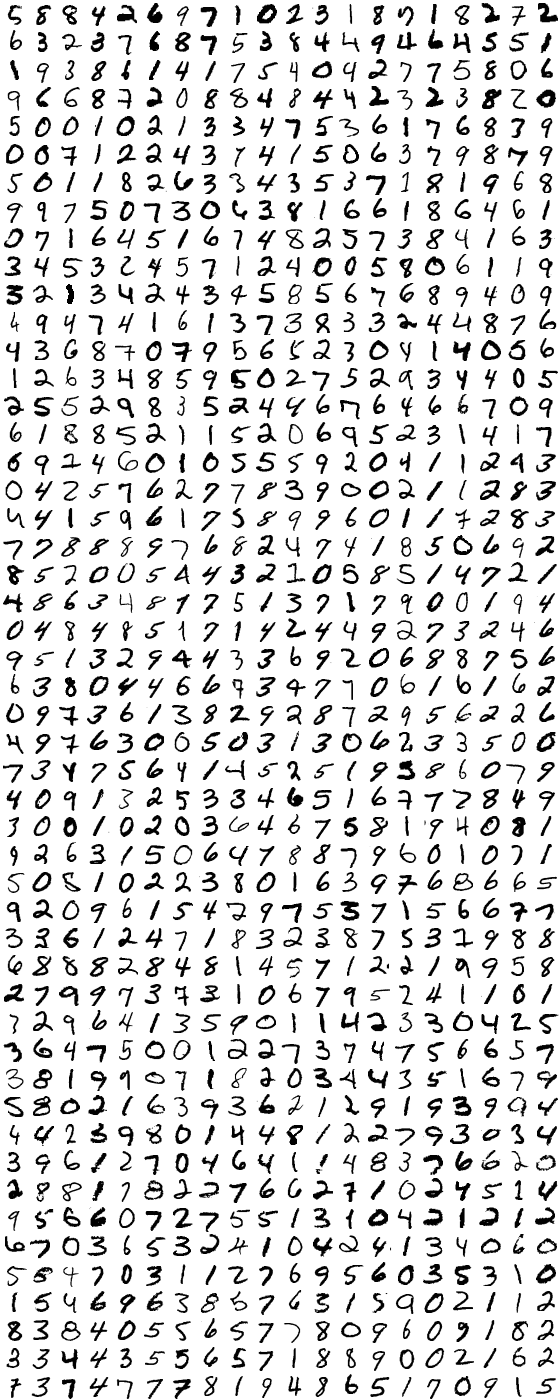 5 8 8 4 2 6 9 7 1 0 2 3 1 8 7 1 8 2 7 2
6 3 2 3 7 6 8 7 5 3 8 4 4 9 4 6 4 5 5 1
1 9 3 8 6 1 4 1 7 5 4 0 4 2 7 7 5 8 0 6
9 6 6 8 7 2 0 8 8 4 8 4 4 2 3 2 3 8 2 0
5 0 0 1 0 2 1 3 3 4 7 5 3 6 1 7 6 8 3 9
0 0 7 1 2 2 4 3 7 4 1 5 0 6 3 7 9 8 7 9
5 0 1 1 8 2 6 3 3 4 3 5 3 7 1 8 1 9 6 8
9 9 7 5 0 7 3 0 6 3 8 1 6 6 1 8 6 4 6 1
0 7 1 6 4 5 1 6 7 4 8 2 5 7 3 8 4 1 6 3
3 4 5 3 2 4 5 7 1 2 4 0 0 5 8 0 6 1 1 9
3 2 1 3 4 2 4 3 4 5 8 5 6 7 6 8 9 4 0 9
4 9 4 7 4 1 6 1 3 7 3 8 3 3 2 4 4 8 7 6
4 3 6 8 7 0 7 9 5 6 5 2 3 0 4 1 4 0 5 6
1 2 6 3 4 8 5 9 5 0 2 7 5 2 9 3 4 4 0 5
2 5 5 2 9 8 3 5 2 4 4 6 7 6 4 6 6 7 0 9
6 1 8 8 5 2 1 1 5 2 0 6 9 5 2 3 1 4 1 7
6 9 2 4 6 0 1 0 5 5 5 9 2 0 4 1 1 2 4 3
0 4 2 5 7 6 2 7 7 8 3 9 0 0 2 1 1 2 8 3
4 4 1 5 9 6 1 7 5 8 9 9 6 0 1 1 7 2 8 3
7 7 8 8 8 9 7 6 8 2 4 7 4 1 8 5 0 6 9 2
8 5 2 0 0 5 4 4 3 2 1 0 5 8 5 1 4 7 2 1
4 8 6 3 4 8 7 7 5 1 3 7 1 7 9 0 0 1 9 4
0 4 8 4 8 5 1 7 1 4 2 4 4 9 2 7 3 2 4 6
9 5 1 3 2 9 4 4 3 3 6 9 2 0 6 8 8 7 5 6
6 3 8 0 4 4 6 6 7 3 4 7 7 0 6 1 6 1 6 2
0 9 7 3 6 1 3 8 2 9 2 8 7 2 9 5 6 2 2 6
4 9 7 6 3 0 0 5 0 3 1 3 0 6 2 3 3 5 0 0
7 3 4 7 5 6 4 1 4 5 2 5 1 9 5 8 6 0 7 9
4 0 9 1 3 2 5 3 3 4 6 5 1 6 7 7 2 8 4 9
3 0 0 1 0 2 0 3 6 4 6 7 5 8 1 9 4 0 8 1
9 2 6 3 1 5 0 6 4 7 8 8 7 9 6 0 1 0 7 1
5 0 5 1 0 2 2 3 8 0 1 6 3 9 7 6 8 6 6 5
9 2 0 9 6 1 5 4 2 9 7 5 3 7 1 5 6 6 7 7
3 3 6 1 2 4 7 1 8 3 2 3 8 7 5 3 7 9 8 8
6 8 8 8 2 8 4 8 1 4 5 7 1 2 2 1 9 9 5 8
2 7 9 9 7 3 7 3 1 0 6 7 9 5 2 4 1 1 0 1
3 2 9 6 4 1 3 5 9 0 1 1 4 2 3 3 0 4 2 5
3 6 4 7 5 0 0 1 2 2 7 3 7 4 7 5 6 6 5 7
3 8 1 9 9 0 7 1 8 2 0 3 4 4 3 5 1 6 7 9
5 8 0 2 1 6 3 9 3 6 2 1 2 9 1 9 3 9 9 4
4 4 2 3 9 8 0 1 4 4 8 1 2 2 7 9 3 0 3 4
3 9 6 1 2 7 0 4 6 4 1 1 4 8 3 7 6 6 2 0
2 8 8 1 7 8 2 2 7 6 6 2 7 1 0 2 4 5 1 4
9 5 6 6 0 7 2 7 5 5 1 3 1 0 4 2 1 2 1 2
6 7 0 3 6 5 3 2 4 1 0 4 2 4 1 3 4 0 6 0
5 8 4 7 0 3 1 1 2 7 6 9 5 6 0 3 5 3 1 0
1 5 4 6 9 6 3 8 5 7 6 3 1 5 9 0 2 1 1 2
8 3 8 4 0 5 5 6 5 7 7 8 0 9 6 0 9 1 8 2
3 3 4 4 3 5 5 6 5 7 1 8 8 9 0 0 2 1 6 2
7 3 7 4 7 7 7 8 1 9 4 8 6 5 1 7 0 9 1 5